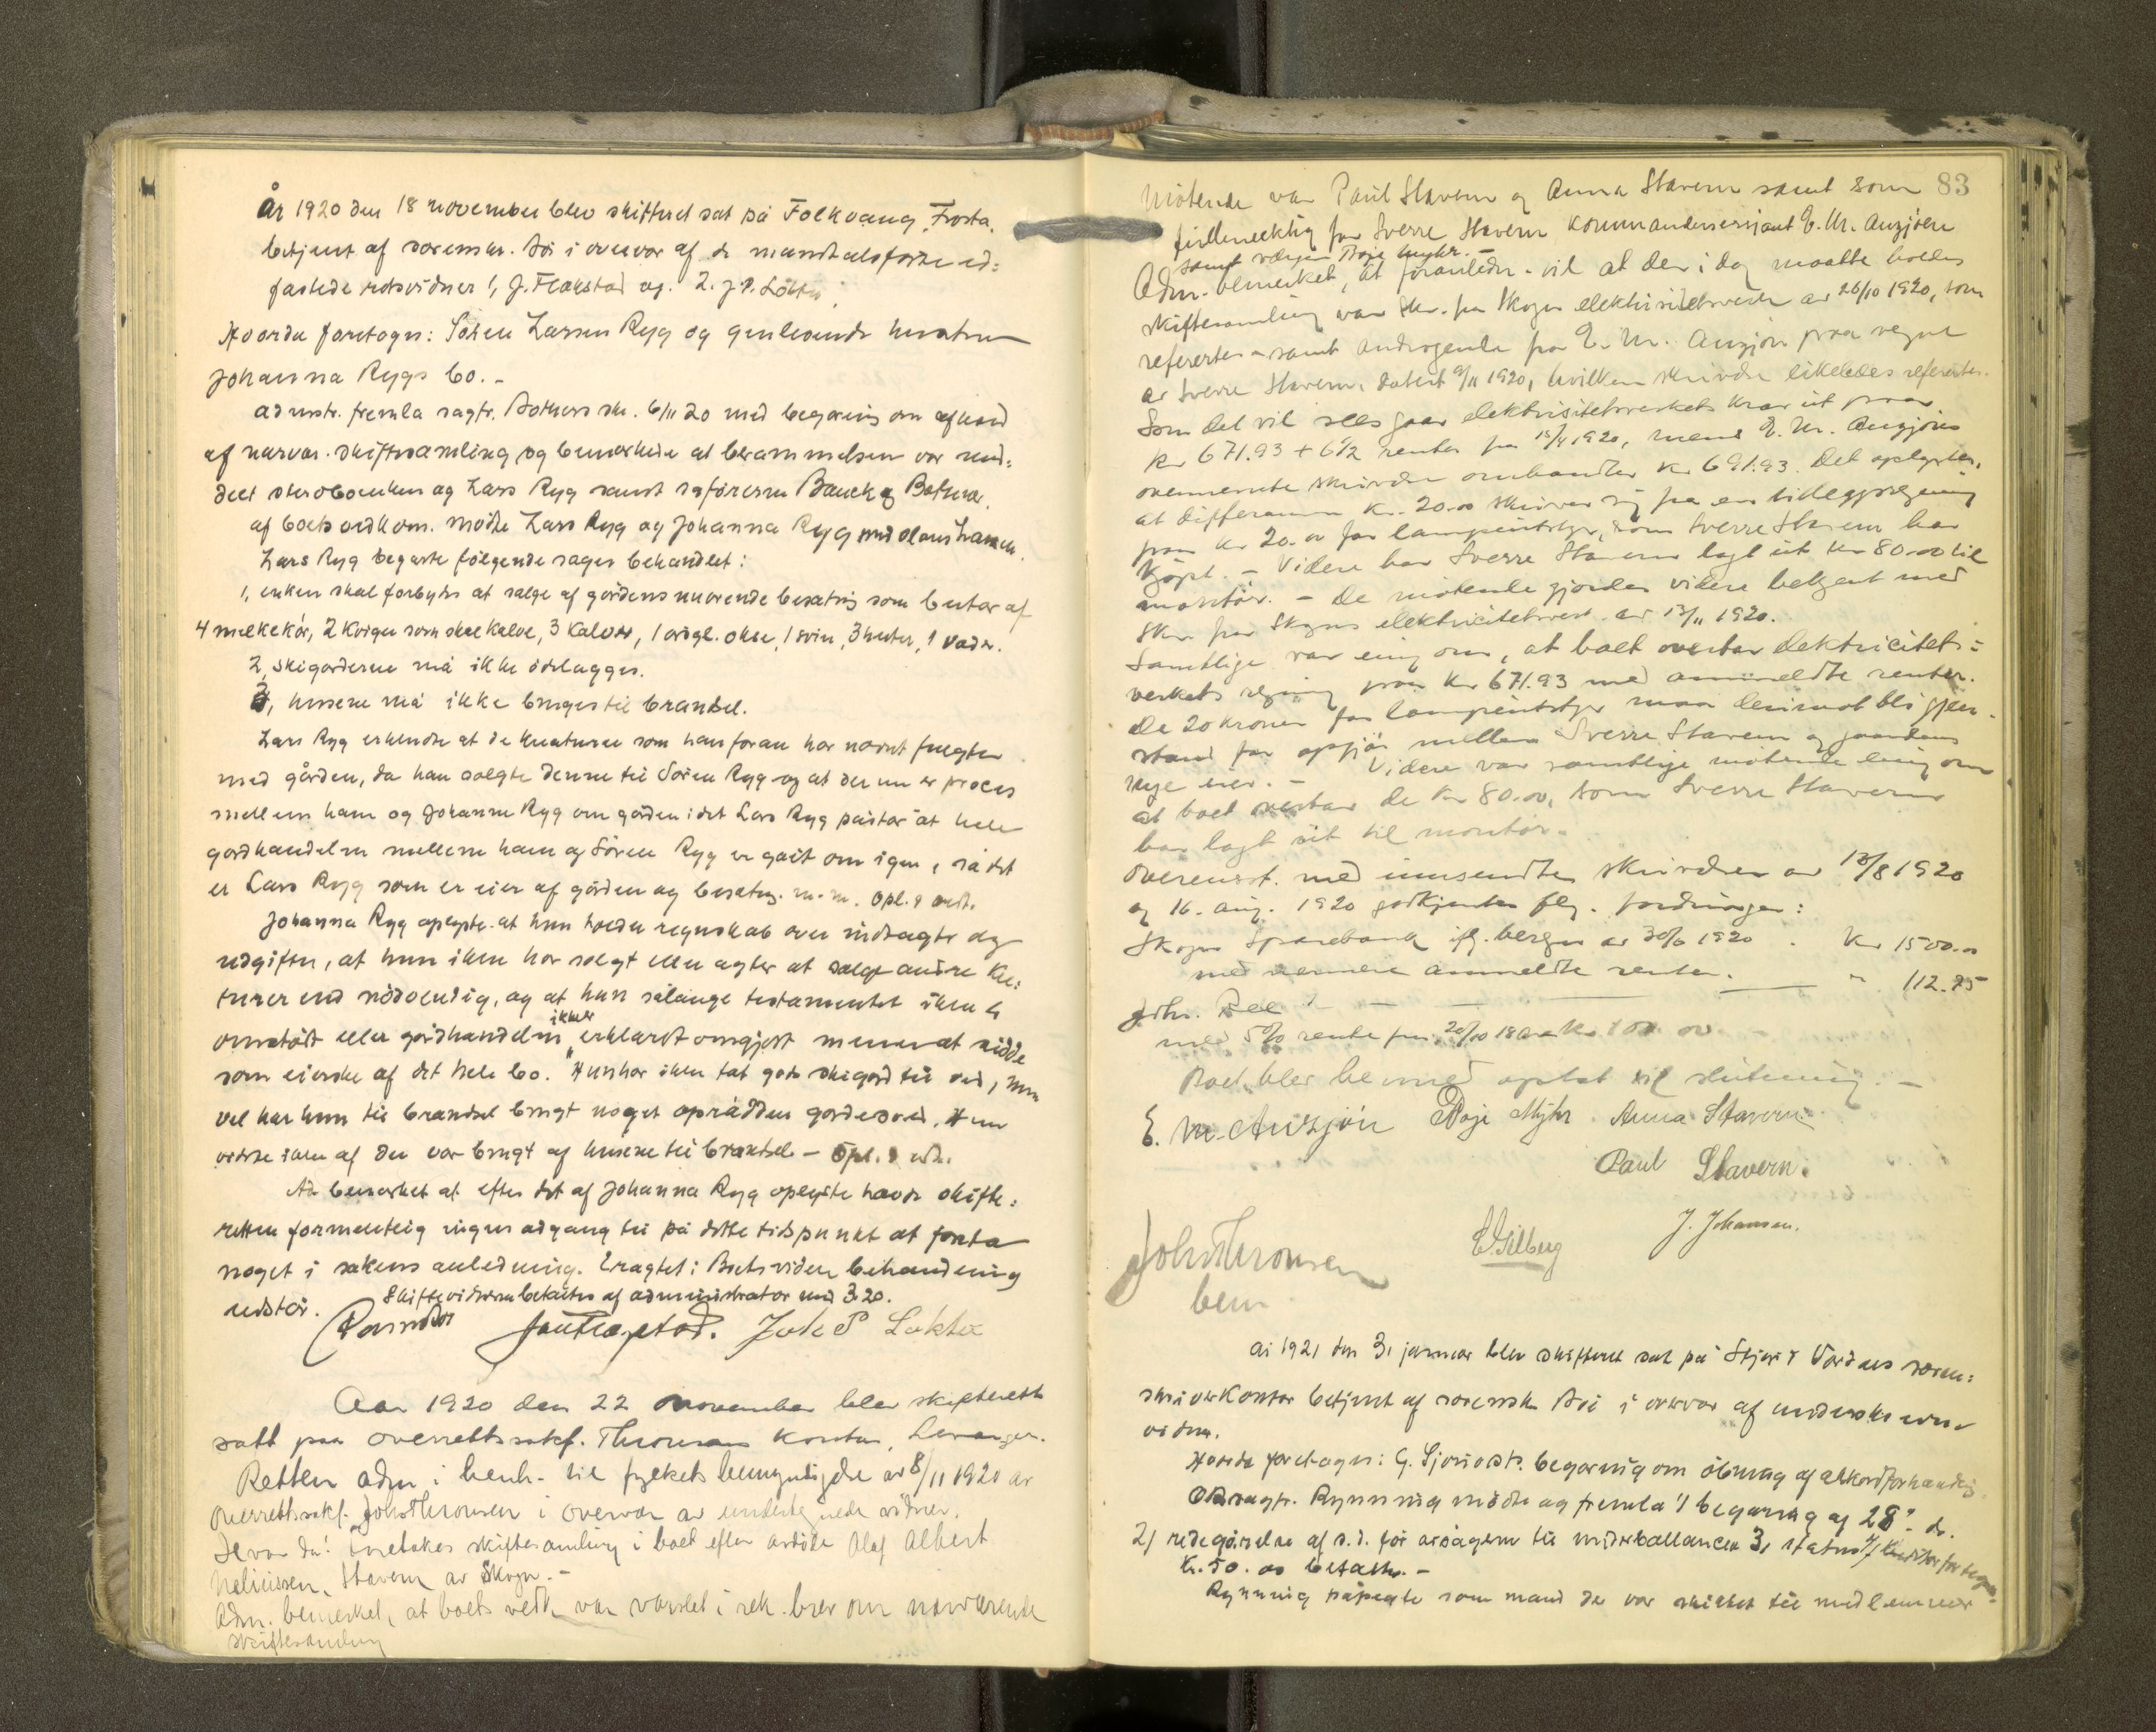 År 1920 den 18 november blev skifteret sat på Folkvang, Frosta,
betjent af sorenskr. Soi i overvær af de mandtalsførte ed=
fæstede retsvidner 1, J. Flakstad og 2. J. P. Løkte.
Hvorda foretoges: Søren Larsen Ryg og gjenlevende hustru
Johanna Rygs bo. -
Admstr. fremla sagfr. Bothners skr. 6/11 20 med begjæring om afhold
af nærvær. skiftesamling og bemærkede at berammelsen var med=
delt og Lars Ryg samt sagførerne Bauck & Botner.
af boets vedkom. mødte Lars Ryg og Johanna Ryg med
Lars Ryg begærte følgende sager behandlet:
1, enken skal forbydes at sælge af gårdens nuværende besætning som består af
4 melkekør, 2 kviger som skal kalve, 3 kalver, 1 årsgl. okse, 1 svin, 3 hester, 1 væder.
2, skigarderne må ikke ødelægges.
3, husene må ikke bruges til brændsel.
Lars Ryg erkjendte at de kreaturer som han foran har nævnt fulgte
med gården, da han solgte denne til Søren Ryg og at der nu er proces
mellem ham og Johanna Ryg om gården idet Lars Ryg påstår at hele
gårdhandelen mellem ham og Søren Ryg er gået om igen, så det
er Lars Ryg som er eier af gården og besætng. m.m. Opl. & vedt.
Johanna Ryg oplyste at hun holder regnskab over indtægter og
udgifter, at hun ikke har solgt eller agter at sælge andre krea=
turer end nødvendig, og at hun sålænge testamentet ikke er
omstødt eller gårdhandelen ikke erklært omgjort mener at sidde
som eierske af det hele bo. Hun har ikke tat gode skigard til ved, men
vel har hun til brændsel brugt noget opråddent gjerdeved. Hun
vidste ikke af der var brugt af husene til brændsel - Opl. & vedt.
Adm bemærket at efter det af Johanna Ryg oplyste havde skifte=
retten formentlig ingen adgang til på dette tidspunkt at foreta
noget i sakens anledning. Eragtet: Boets videre behandling
udstår. Skiftevidnerne betaltes af administrator med 3.20.
Jak P Løkte
Aar 1920 den 22 november blev skifterett
satt paa overrettssakf. Thronsens kontor, Levanger.
Retten adm. i henh. til fylkets bemyndigelse av 8/11 1920 av
overrettssakf. John Thronsen i overvær av undertegnede vidner.
Hvorda: Foretokes skiftesamling i boet efter avdøde Olaf Albert
Stavern av Skogn. -
Adm. bemerket, at boets vedk. var varslet i rek. brev om nærværende
skiftesamling
83
Møtende var Paul Stavern og Anna Stavern samt som
fuldmektig for Sverre Stavern kommandersersjant E. M. Auzjøen
samt vergen Roje Myhr. -
Adm. bemerket, at foranledn. til at der i dag maatte holdes
skiftesamling var skr. fra Skogn elektrisitetsverk av 26/10 1920, som
refereres - samt andragende fra E. M. Auzjøn paa vegne
av Sverre Stavern, datert 9/11 1920, hvilken skrivelse likeledes refereres.
Som det vil sees gaar elektrisitetsverkets krav ut paa
kr 671.93 + 6½ renter fra 15/4 1920, mens E. M. Auzjøns
ovennevnte skrivelse omhandler kr 691.93. Det oplystes,
at differansen kr. 20.00 skriver sig fra en tilleggsregning
paa kr 20.00 for lampeutstyr, som Sverre Stavern har
kjøpt. - Videre har Sverre Stavern lagt ut kr 80.00 til
montør. - De møtende gjordes videre bekjent med
skr. fra Skogns elektricitetsverk av 13/11 1920.
Samtlige var enig om, at boet overtar elektricitets=
verkets regning paa kr 671.93 med anmeldte renter.
De 20 kroner for lampeutstyr maa derimot bli gjen-
stand for opgjør mellem Sverre Stavern og gaardens
nye eier. - Videre var samtlige møtende enig om
at boet overtar de kr 80.00, som Sverre Stavern
har lagt ut til montør.
Overensst. med innsendte skrivelser av 13/8 1920
og 16. aug. 1920 godkjentes flg. fordringer:
Skogns Sparebank ifg. bergn av 30/6 1920 . kr 1500.00
med nermere anmeldte renter. " 112.85
Joh. Ree
med 5% rente fra 20/10 18 kr 100.00
Boet blev hermed optat til slutning -
E. M. Auzjøn Roje Myhr Anna Stavern
Paul Stavern.
John Thronsen E Gilberg J. Johansen.
bem.
År 1921 den 3, januar blev skifteret sat på Stjør- & Værdals soren=
skriverkontor betjent af sorenskr. Soi i overvær af underskrevne
vidner.
Hvorda foretoges: G. Sjøqvists begæring om åbning af akkordforhandling.
Orsagfr. Rynning mødte og fremla 1) begæring af 28' ds.
2) redegjørelse af s.d. for årsagerne til underballancen 3, status 4,
kr. 50.00 betaltes. -
Rynning påpegte som mænd der var skikket til medlemmer